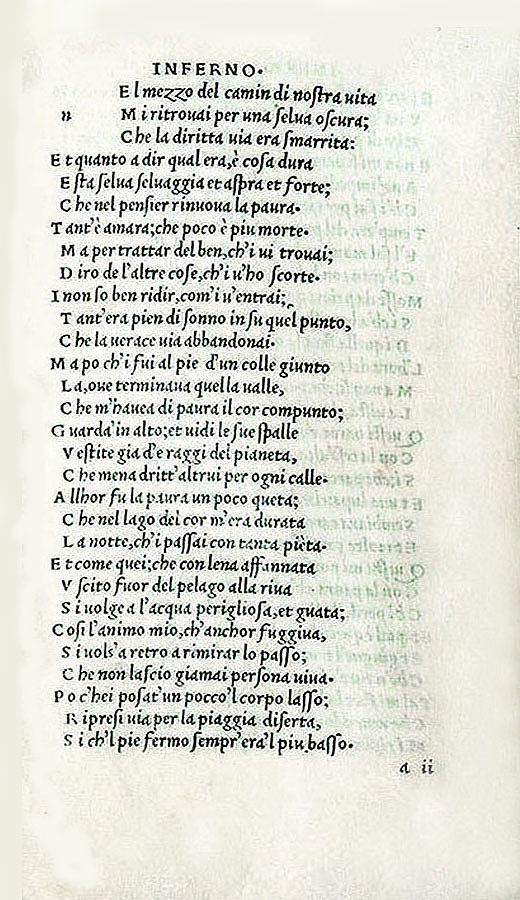 INFERNO.
E l mezzo del camin di noſtra uita
n M i ritrouai per una ſelua oſcura;
C he la diritta uia era ſmarrita:
E t quanto a dir qual era, è coſa dura
E ſta ſelua ſeluaggia et aſpra et forte;
C he nel penſier rinuoua la paura.
T ant'è amara; che poco è piu morte.
M a per trattar del ben, ch'i ui trouai;
D iro de l'altre coſe, ch'i u'ho ſcorte.
I non ſo ben ridir, com'i u'entrai;
T ant'era pien di ſonno in ſu quel punto,
C he la uerace uia abbandonai.
M a po ch'i fui al pie d'un colle giunto
L a, oue terminaua quella ualle,
C he m'hauea di paura il cor compunto;
G uarda'in alto; et uidi le ſue ſpalle
V eſtite gia d'e raggi del pianeta,
C he mena dritt'altrui per ogni calle.
A llhor fu la paura un poco queta;
C he nel lago del cor m'era durata
L a notte, ch'i paſſai con tanta pièta.
E t come quei; che con lena affannata
V ſcito fuor del pelago alla riua
S i uolge a l'acqua periglioſa, et guata;
C oſi l'animo mio, ch'anchor fuggiua,
S i uolſ'a retro a rimirar lo paſſo;
C he non laſcio giamai perſona uiua.
P o c'hei poſat'un pocco'l corpo laſſo;
R ipreſi uia per la piaggia diſerta,
S i ch'l pie fermo ſempr'era'l piu baſſo.
a ii